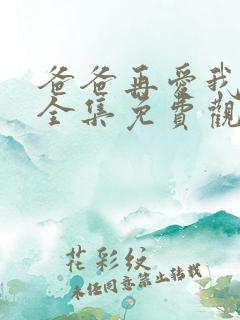 爸爸再愛我
全集免費觀
花彩紋
未经同意禁止转载